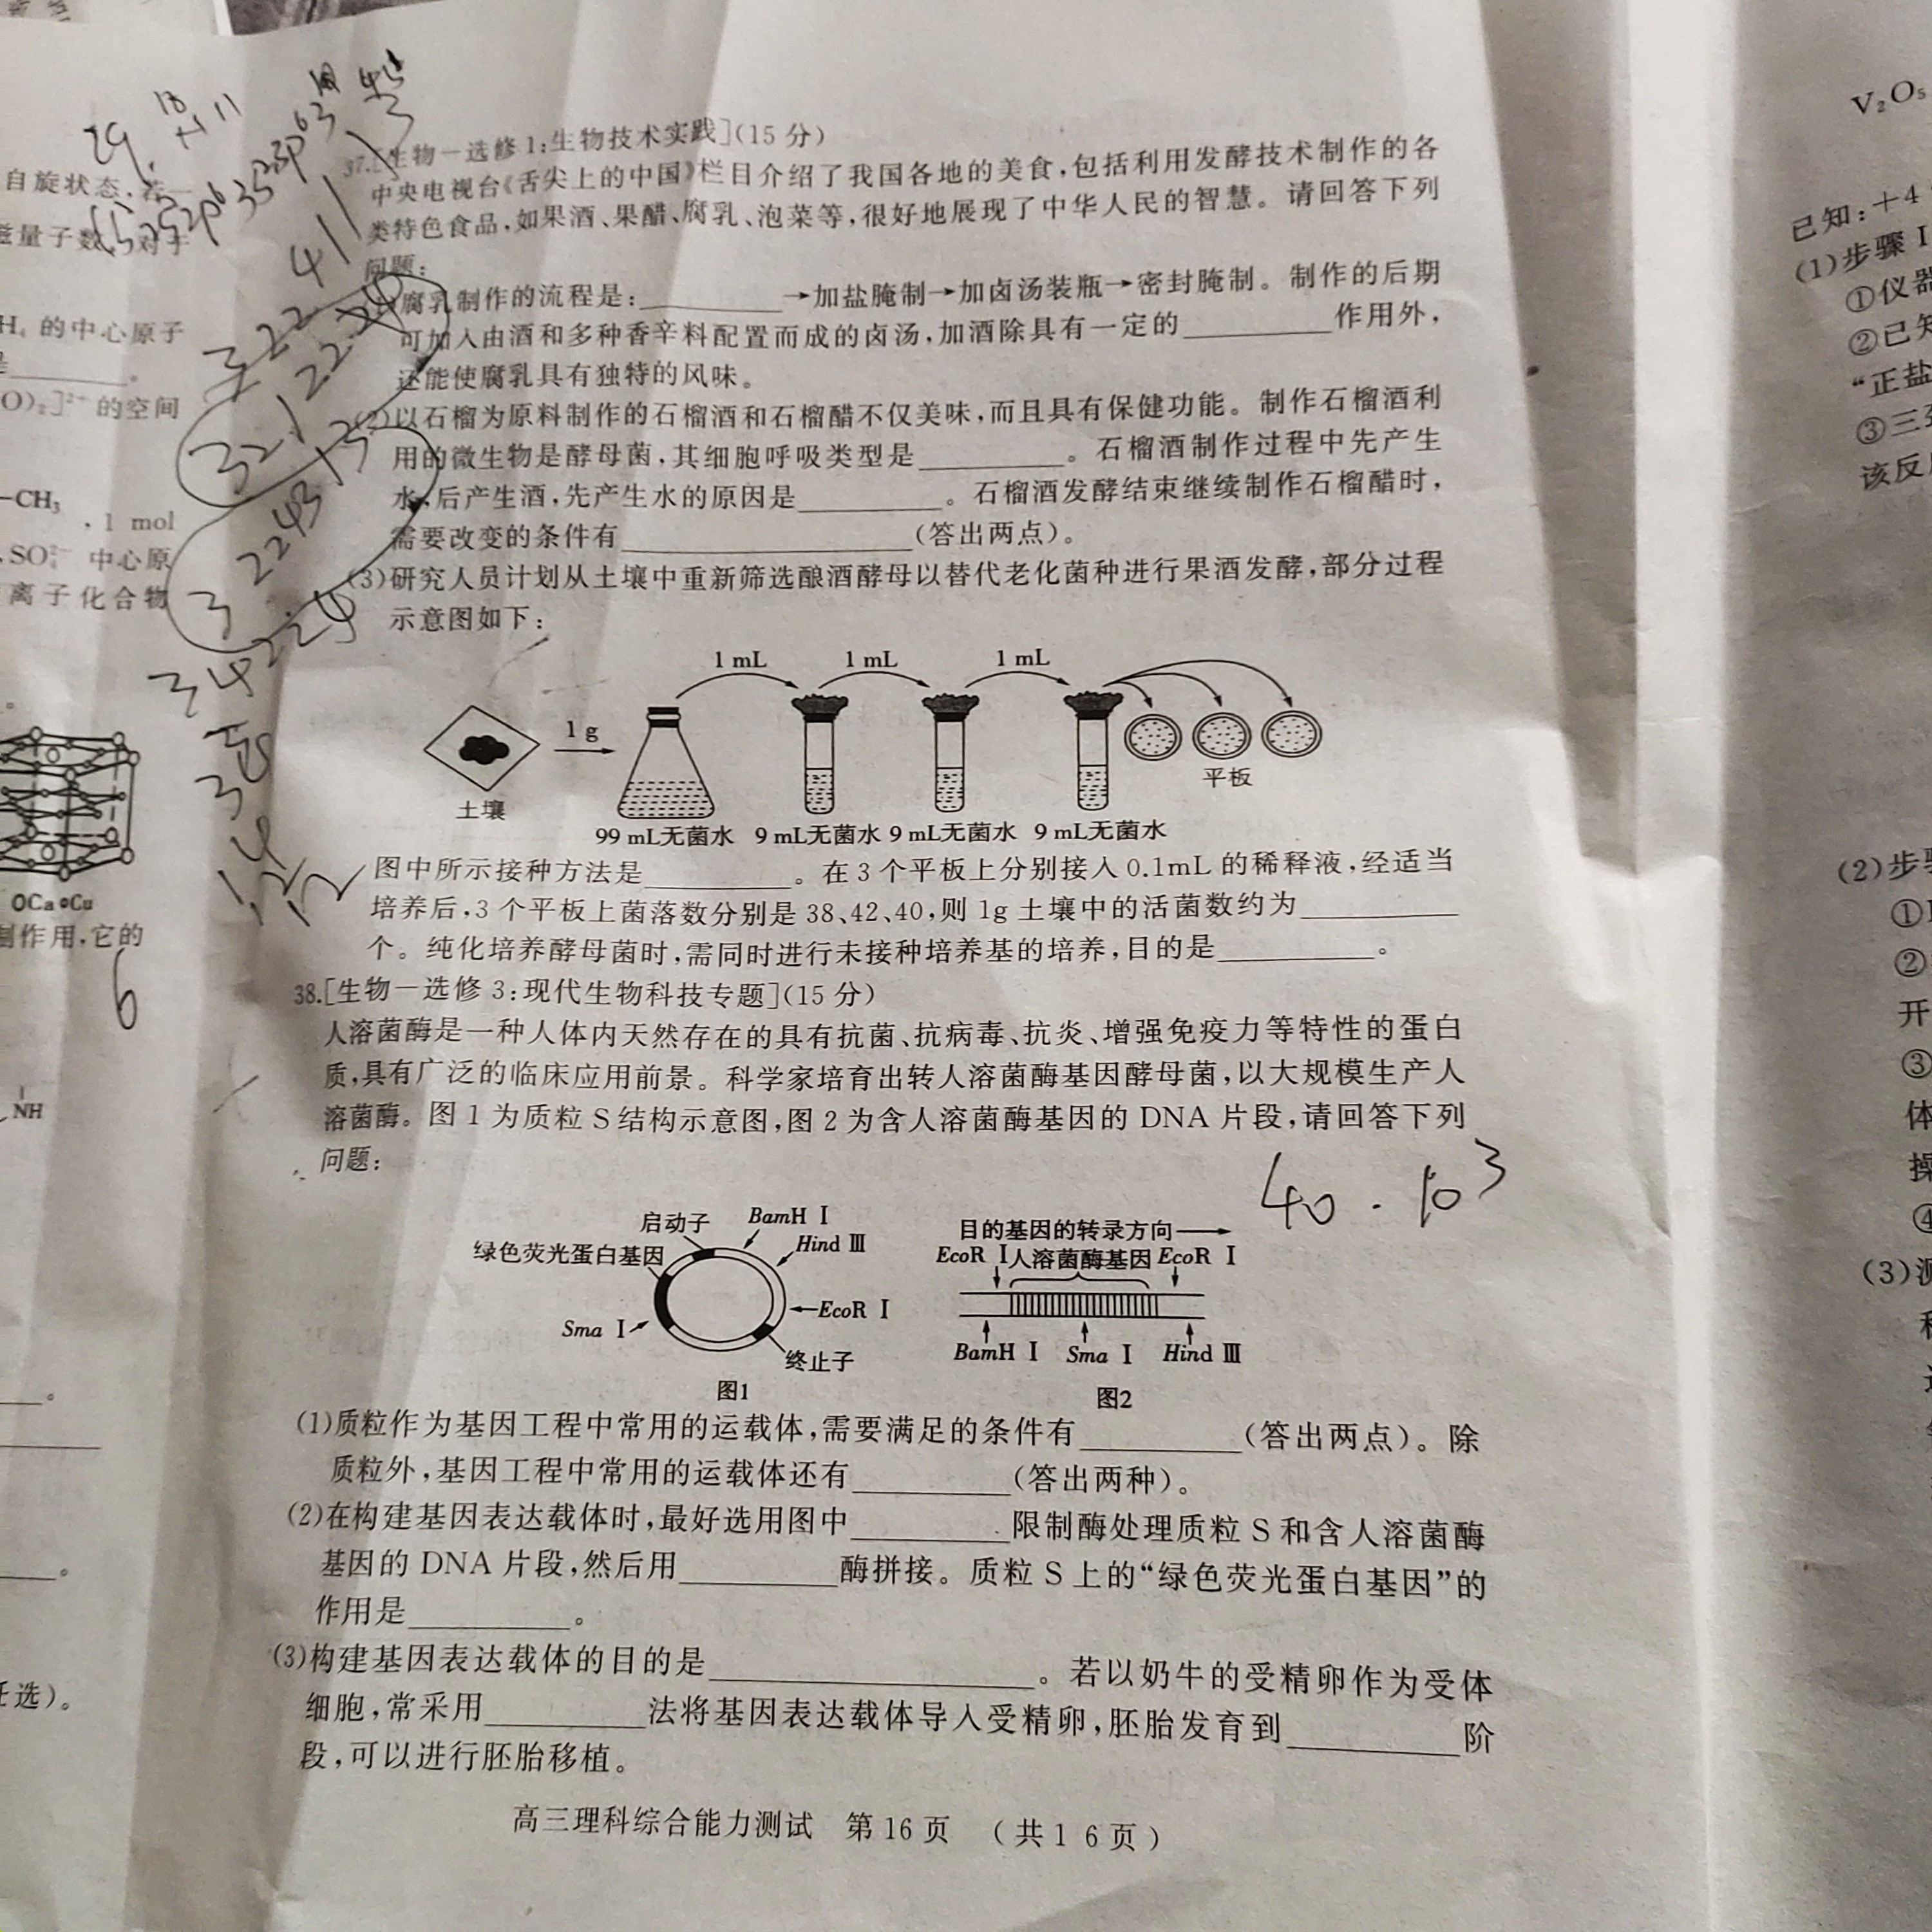 37.[生物—选修1:生物技术实践](15分)
中央电视台《舌尖上的中国》栏目介绍了我国各地的美食,包括利用发酵技术制作的各
类特色食品,如果酒、果醋、腐乳、泡菜等,很好地展现了中华人民的智慧。请回答下列
问题:
腐乳制作的流程是:________→加盐腌制→加卤汤装瓶→密封腌制。制作的后期
可加入由酒和多种香辛料配置而成的卤汤,加酒除具有一定的________作用外,
还能使腐乳具有独特的风味。
(2)以石榴为原料制作的石榴酒和石榴醋不仅美味,而且具有保健功能。制作石榴酒利
用的微生物是酵母菌,其细胞呼吸类型是________。石榴酒制作过程中先产生
水,后产生酒,先产生水的原因是________。石榴酒发酵结束继续制作石榴醋时,
需要改变的条件有________________(答出两点)。
(3)研究人员计划从土壤中重新筛选酿酒酵母以替代老化菌种进行果酒发酵,部分过程
示意图如下:
1 mL 1 mL 1 mL
1 g
土壤
平板
99 mL无菌水 9 mL无菌水 9 mL无菌水 9 mL无菌水
图中所示接种方法是________。在3个平板上分别接入0.1mL的稀释液,经适当
培养后,3个平板上菌落数分别是38、42、40,则1g土壤中的活菌数约为________
个。纯化培养酵母菌时,需同时进行未接种培养基的培养,目的是________。
38.[生物—选修3:现代生物科技专题](15分)
人溶菌酶是一种人体内天然存在的具有抗菌、抗病毒、抗炎、增强免疫力等特性的蛋白
质,具有广泛的临床应用前景。科学家培育出转人溶菌酶基因酵母菌,以大规模生产人
溶菌酶。图1为质粒S结构示意图,图2为含人溶菌酶基因的DNA片段,请回答下列
问题:
40·10³
启动子 BamH Ⅰ
绿色荧光蛋白基因 Hind Ⅲ
EcoR Ⅰ
Sma Ⅰ
终止子
图1
目的基因的转录方向
EcoR Ⅰ 人溶菌酶基因 EcoR Ⅰ
BamH Ⅰ Sma Ⅰ Hind Ⅲ
图2
(1)质粒作为基因工程中常用的运载体,需要满足的条件有________(答出两点)。除
质粒外,基因工程中常用的运载体还有________(答出两种)。
(2)在构建基因表达载体时,最好选用图中________限制酶处理质粒S和含人溶菌酶
基因的DNA片段,然后用________酶拼接。质粒S上的“绿色荧光蛋白基因”的
作用是________。
(3)构建基因表达载体的目的是________________。若以奶牛的受精卵作为受体
细胞,常采用________法将基因表达载体导入受精卵,胚胎发育到________阶
段,可以进行胚胎移植。
高三理科综合能力测试 第16页 (共16页)
自旋状态,若一
H₄的中心原子
O)₂]²⁺的空间
—CH₃
,1 mol
SO₄²⁻中心原
离子化合物
OCa •Cu
制作用,它的
6
NH
任选)。
V₂O₅
已知:+4
(1)步骤Ⅰ
①仪器
②已知
“正盐
③三
该反应
(2)步骤
①
②
开
③
体
操
④
(3)测